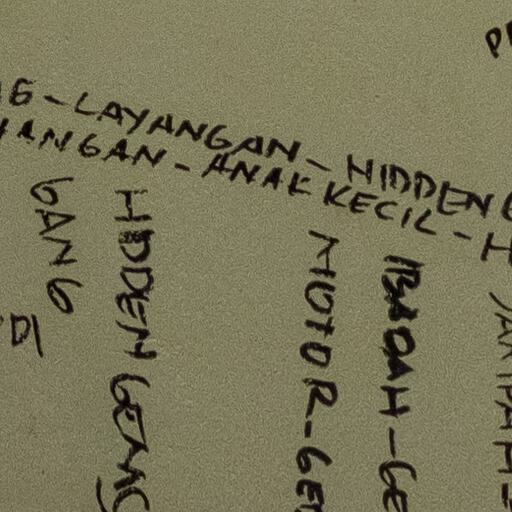 G-LAYANGAN-HIDDEN G
YANGAN-ANAK KECIL-H
GANG
HIDDEN GEMS
MOTOR-GE
IBADAH-GE